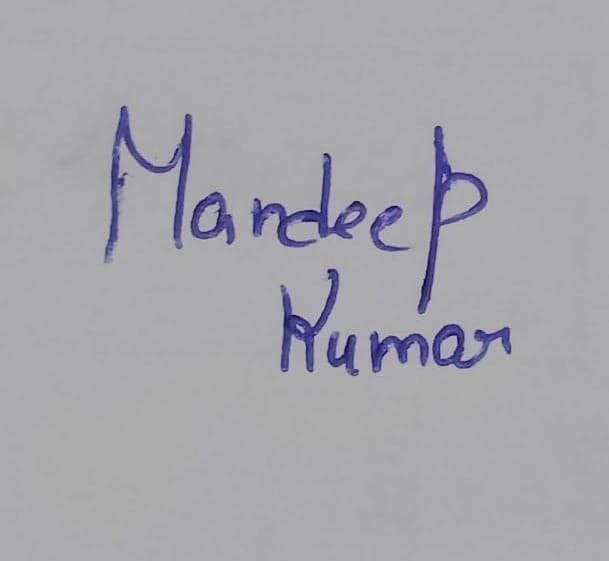 Mandeep
Kumar